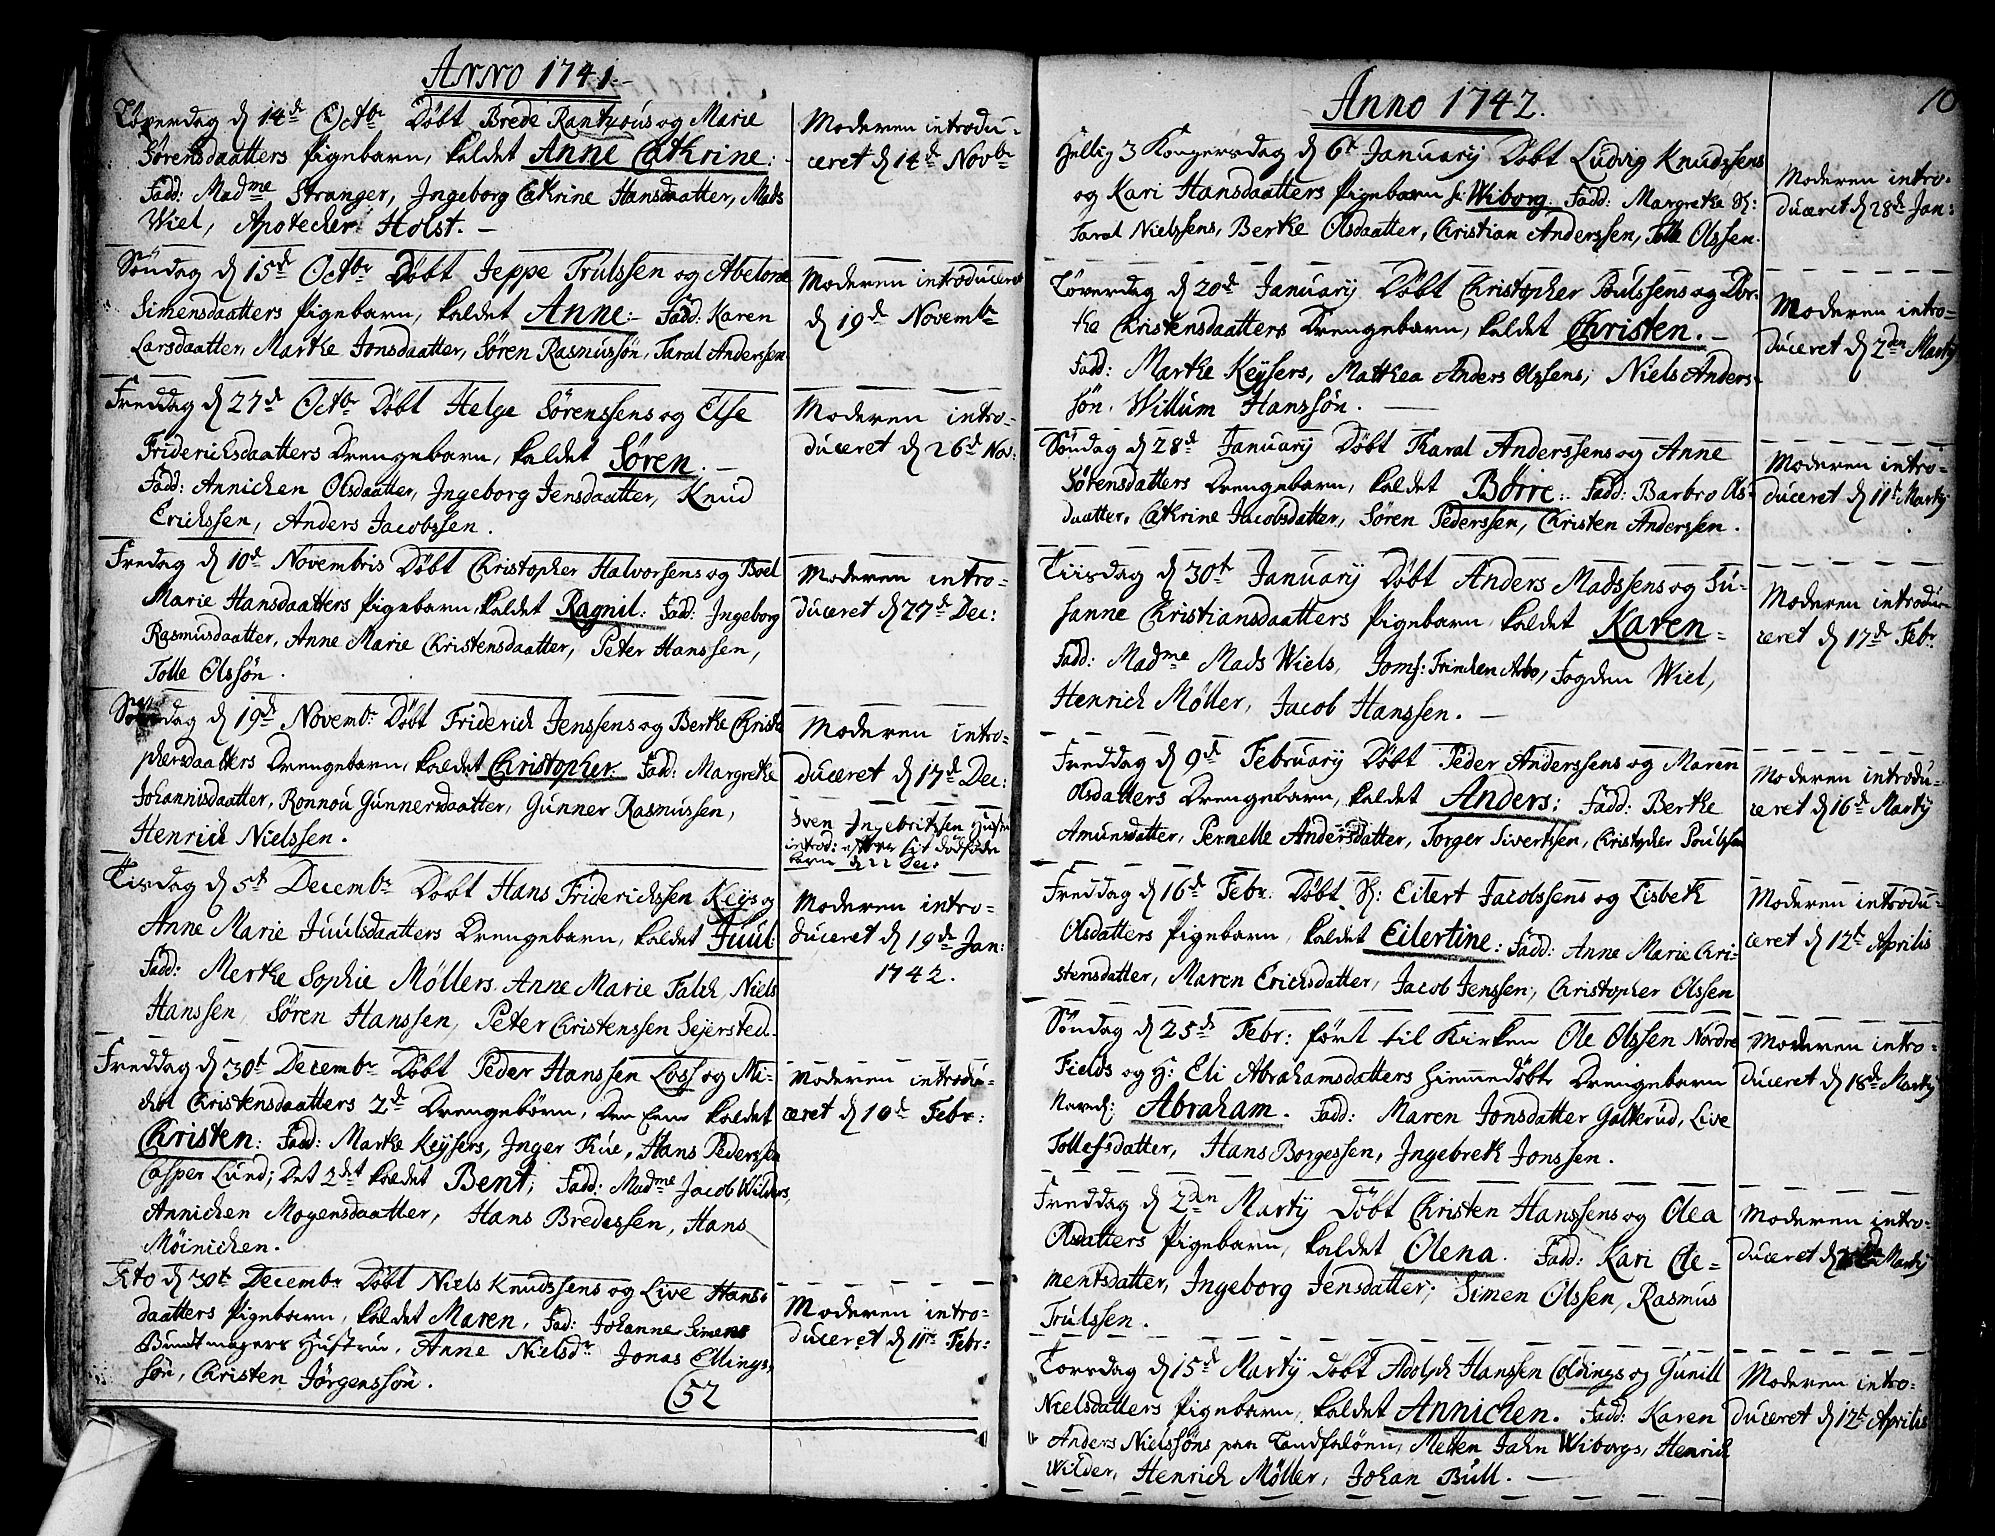 Anno 1741.
Løverdag d 14de Octbr Døbt Brede Rantzous og Marie
Sørensdaatters Pigebarn, kaldet Anne Cathrine:
Fadd: Madme Stranger, Ingeborg Cathrine Hansdaatter, Mads
Wiel, Apotecher Holst.
Moderen introdu-
ceret d 14de Novbr
Søndag d 15de Octbr Døbt Jeppe Trulssen og Abelone
Simensdaatters Pigebarn, kaldet Anne: Fadd: Karen
Larsdaatter, Marthe Jonsdaatter, Søren Rasmussøn, Taral Anderssen
Moderen introduceret
d 19de Novembr
Freddag d 27de Octbr Døbt Helge Sørenssens og Else
Friderichsdaatters Drengebarn, kaldet Søren.
Fadd: Annichen Olsdaatter, Ingeborg Jensdaatter, Knud
Erichssen, Anders Jacobssen.
Moderen intro-
duceret d 26de Nov:
Fredag d 10de Novembris Døbt Christopher Halvorsens og Boel
Marie Hansdaatters Pigebarn, kaldet Ragnil: Fadd: Ingeborg
Rasmusdaatter, Anne Marie Christensdaatter, Peter Hanssen,
Tolle Olssøn.
Moderen intro-
duceret d 27de Dec:
Søndag d 19de Novembr Døbt Friderich Jenssens og Berthe Christo
phersdaatters Drengebarn, kaldet Christopher. Fadd: Margrethe
Johannisdaatter, Ronnou Gunnersdaatter, Gunner Rasmussen,
Henrich Nielssen.
Moderen intro-
duceret d 17de Dec:
Sven Ingebritssen Hustru
introd: efter sit dødføde
barn d 22 Dec:
Tisdag d 5te Decembr Døbt Hans Friderichssen Keys og
Anne Marie Juulsdaatters Drengebarn, kaldet Juul:
Fadd: Merthe Sophie Møllers, Anne Marie Falch, Niels
Hanssen, Søren Hanssen, Peter Christenssen Sejersted.
Moderen intro-
duceret d 19de Jan:
1742.
Freddag d 30te Decembr Døbt Peder Hanssen Loss og Mi-
chel Christensdaatters 2de Drengebørn, Den Ene kaldet
Christen: Fadd: Marthe Keysers, Inger Thue, Hans Pederssen
Casper Lund; Det 2det kaldet Bent; Fadd: Madme Jacob Wilders,
Annichen Mogensdaatter, Hans Bredessen, Hans
Møinichen.
Moderen introdu-
ceret d 10de Febr:
Dito d 30te Decembr Døbt Niels Knudssens og Live Hans-
daatters Pigebarn, kaldet Maren. Fad: Johanne Simens
Bundtmagers Hustrue, Anne Nielsdr Jonas Ellings-
søn, Christen Jørgenssøn.
(52
Moderen intro-
duceret d 11te Febr:
10
Anno 1742.
Hellig 3 Kongersdag d 6te January Døbt Ludvig Knudssens
og Kari Hansdaatters Pigebarn k: Wiborg. Fadd: Margrethe Sr:
Taral Nielssens, Berthe Olsdaatter, Christian Anderssen, Tolle Olssen.
Moderen intro-
duceret d 28de Jan:
Løverdag d 20de January Døbt Christopher Poulssens og Dor-
the Christensdaatters Drengebarn, kaldet Christen.
Fadd: Marthe Keysers, Matthea Anders Olssens, Niels Anders-
søn, Willum Hanssøn.
Moderen intro-
duceret d 2den Marty
Søndag d 28de January Døbt Tharal Anderssens og Anne
Sørensdatters Drengebarn, kaldet Børre: Fadd: Barbro Ols-
daatter, Cathrine Jacobsdatter, Søren Pederssen, Christen Anderssen.
Moderen intro-
duceret d 11te Marty
Tiisdag d 30te January Døbt Anders Madssens og Su-
sanne Christiansdaatters Pigebarn kaldet Karen
Fadd: Madme Mads Wiels, Jomf: Trinchen Arbo, Fogden Wiel,
Henrich Møller, Jacob Hanssen.
Moderen introdu-
ceret d 17de Febr.
Freddag d 9de February Døbt Peder Anderssens og Maren
Olsdatters Drengebarn, kaldet Anders: Fadd: Berthe
Amunsdatter, Pernelle Andersdatter, Torger Sivertssen, Christopher Poulssen
Moderen introdu-
ceret d 16de Marty
Freddag d 16de Febr. Døbt Sr: Eilert Jacobssens og Lisbeth
Olsdatters Pigebarn, kaldet Eilertine: Fadd: Anne Marie Chri-
stensdatter, Maren Erichsdatter, Jacob Jenssen, Christopher Olssen
Moderen introdu-
ceret d 12te Aprilis
Søndag d 25de Febr: ført til Kirken Ole Olssen Nordre
Fields og H: Eli Abrahamsdatters hiemmedøbte Drengebarn
Navnd: Abraham. Fadd: Maren Jonsdatter Galterud, Live
Tollefsdatter, Hans Borgessen, Ingebreth Jonssen.
Moderen intro-
duceret d 18de Marty
Freddag d 2den Marty Døbt Christen Hanssens og Olea
Olsdatters Pigebarn, kaldet Olena. Fadd: Kari Cle-
mentsdatter, Ingeborg Jensdatter; Simen Olssen, Rasmus
Trulssen.
Moderen intro-
duceret d Marty
Torsdag d 15de Marty Døbt Adolph Hanssen Coldings og Gunill
Nielsdatters Pigebarn, kaldet Annichen. Fadd: Karen
Anders Nielssøns paa Tandfaløen, Metten Jahn Wiborgs, Henrich
Wilder, Henrich Møller, Johan Bull.
Moderen intro-
duceret d 12te Aprilis